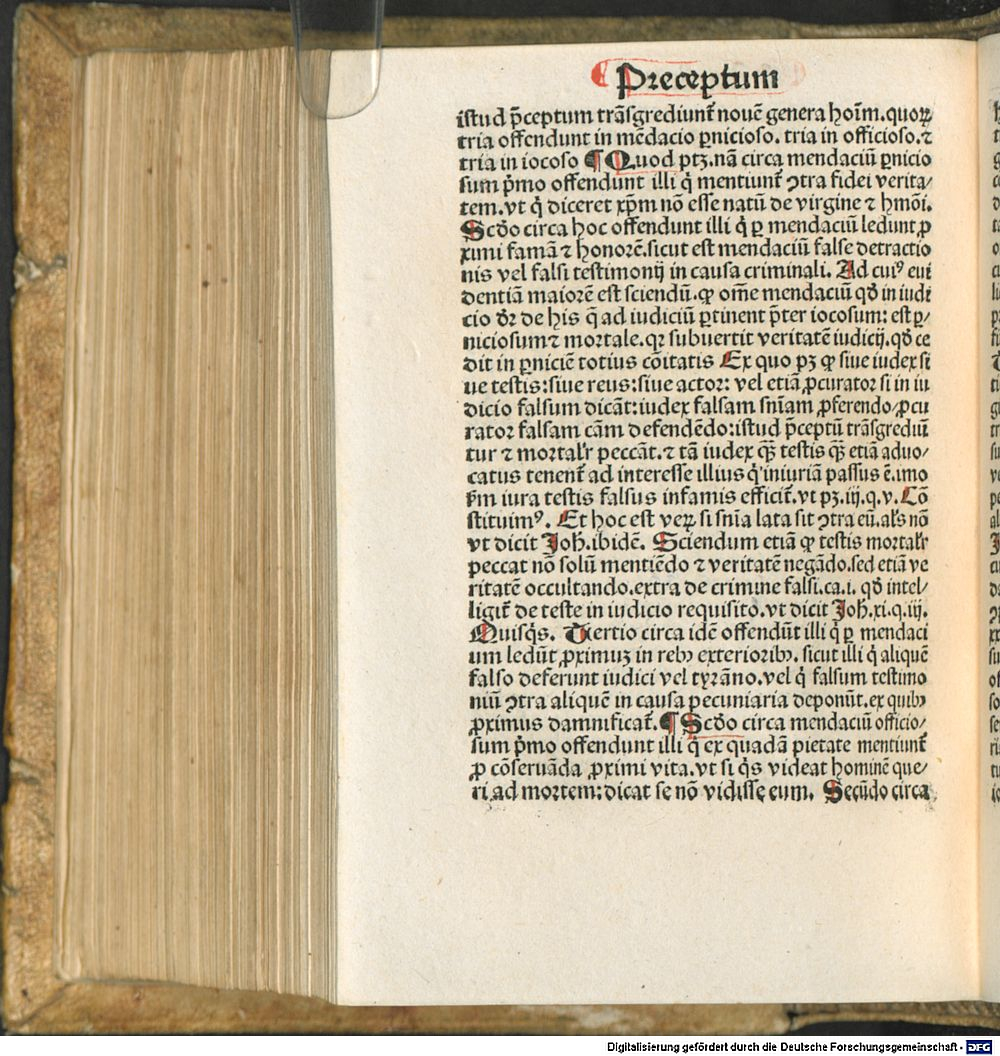 Preceptum
istud p̄ceptum trāsgrediunt᷑ nouē genera hoīm.quoꝝ
tria offendunt in mēdacio ꝑnicioso. tria in officioso.⁊
tria in iocoso ¶ Quod ptꝫ.nā circa mendaciū ꝑnicio
sum p̄mo offendunt illi q̇ mentiunt᷑ ꝯtra fidei verita⸗
tem.vt q̇ diceret xp̄m nō esse natū de virgine ⁊ hmōi.
Scd̄o circa hoc offendunt illi q̇ ꝑ mendaciū ledunt ꝓ
ximi famā ⁊ honorē.sicut est mendaciū false detractio
nis vel falsi testimonij in causa criminali. Ad cuiꝰ eui
dentiā maiorē est sciendū.ꝙ om̄e mendaciū qd̄ in iudi
cio d̄r de his q̄ ad iudiciū ꝑtinent p̄ter iocosum: est ꝑ⸗
niciosum ⁊ mortale.qꝛ subuertit veritatē iudicij.qd̄ ce
dit in ꝑniciē totius cōitatis Ex quo pꝫ ꝙ siue iudex si
ue testis:siue reus:siue actor: vel etiā ꝓcurator si in iu
dicio falsum dicāt:iudex falsam sn̄iam ꝓferendo⸗ꝓcu
rator falsam cām defendēdo:istud p̄ceptū trāsgrediū
tur ⁊ mortal'r peccāt.⁊ tā iudex qꝫ̄ testis qꝫ̄ etiā aduo⸗
catus tenent᷑ ad interesse illius q̇ iniuriā passus ē.imo
ẜm iura testis falsus infamis efficit᷑.vt pꝫ.iij.q.v.Cō
stituimꝰ. Et hoc est veꝝ si sn̄ia lata sit ꝯtra eū.al's nō
vt dicit Joh.ibidē. Sciendum etiā ꝙ testis mortal'r
peccat nō solū mentiēdo ⁊ veritatē negādo.sed etiā ve
ritatē occultando.extra de crimine falsi.ca.i. qd̄ intel⸗
ligit᷑ de teste in iudicio requisito.vt dicit Joh.xi.q.iij.
Quisq̇s. Tertio circa idē offendūt illi q̇ ꝑ mendaci
um ledūt ꝓximuꝫ in rebꝫ exterioribꝫ. sicut illi q̇ aliquē
falso deferunt iudici vel tyrāno.vel q̇ falsum testimo
niū ꝯtra aliquē in causa pecuniaria deponūt.ex quibꝫ
ꝓximus damnificat᷑.¶ Scd̄o circa mendaciū officio⸗
sum p̄mo offendunt illi q̇ ex quadā pietate mentiunt᷑
ꝓ cōseruāda ꝓximi vita.vt si q̇s videat hominē que⸗
ri ad mortem:dicat se nō vidisse eum. Secūdo circa
Digitalisierung gefördert durch die Deutsche Forschungsgemeinschaft - DFG